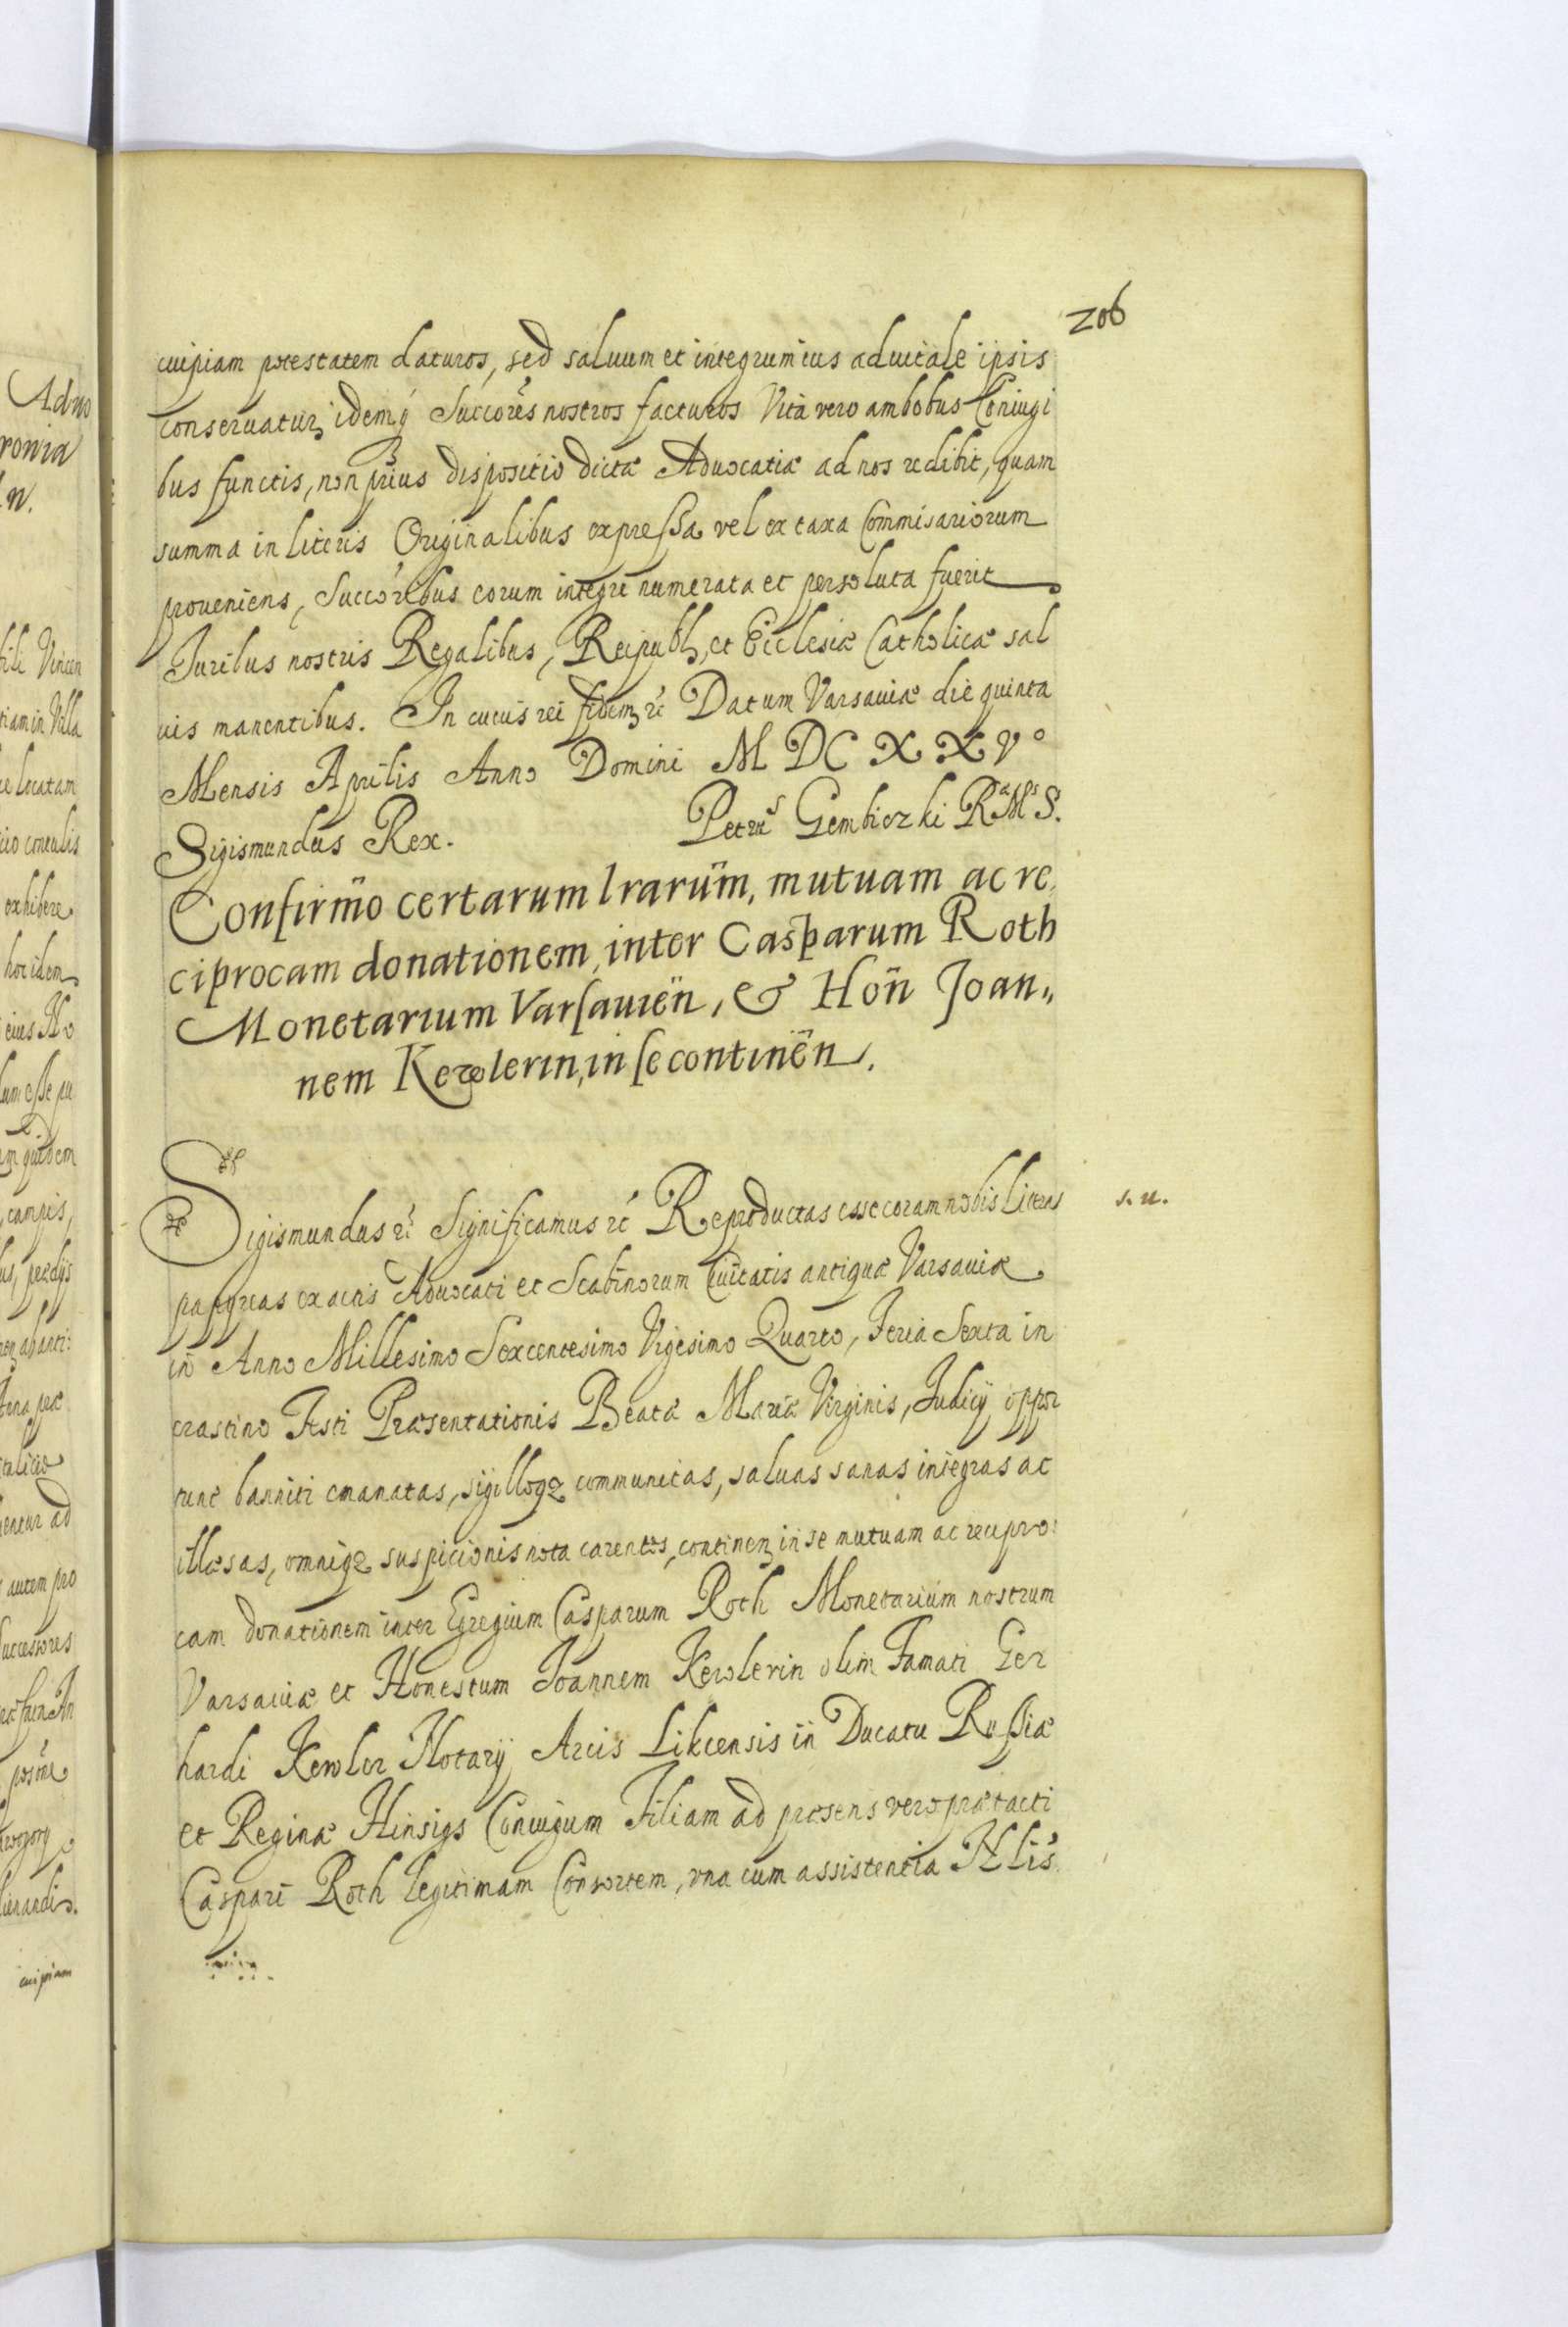 206
cuipiam potestatem daturos, sed saluum et integrum ius aduitale ipsis
conseruatur, idemq́ Succores nostros facturos Vita vero ambobus Coniugi
bus functis, non prius dispositio dictæ Aduocatiæ ad nos redibit, quam
summa in literis Originalibus expreſsa vel ex taxa Commisariorum
proueniens, Succoribus eorum integre numerata et persoluta fuerit
Iuribus nostris Regalibus, Reipubl, et Ecclesiæ Catholicæ sal
uis manentibus. In cuius rei fidem rc̃ Datum Varsauiæ die quinta
Mensis Aprilis Anno Domini M DC X X Vº
Sigismundus Rex. Petrus Gembiczki Rᵃ Mˢ S.
Confirm̃o certarum lrarum̃, mutuam ac re
ciprocam donationem, inter Casparum Roth
Monetarium Varſauień, & Hoñ Joan„
nem Kewlerin, in ſe continen̄.
Sigismundus rc̃ Significamus rc̃ Reproductas esse coram nobis literas
s. n.
papyreas ex actis Aduocati et Scabinorum Ciuitatis antiquæ Varsauiæ
in Anno Millesimo Sexcentesimo Vigesimo Quarto, Feria Sexta in
crastino Festi Præsentationis Beatæ Mariæ Virginis, Iudicij oppor
tune banniti emanatas, sigilloqz communitas, saluas sanas integras ac
illæsas, omniqz suspicionis nota carentes, continen in se mutuam ac recipro
cam donationem inter Egregium Casparum Roth Monetarium nostrum
Varsauiæ et Honestum Joannem Kewlerin olim Famati Ger
hardi Kewler Notarij Arcis Likcensis in Ducatu Ruſsiæ
et Reginæ Hinsigs Coniugum Filiam ad præsens vero prætacti
Caspari Roth legitimam Consortem, vna cum assistentia Nlis